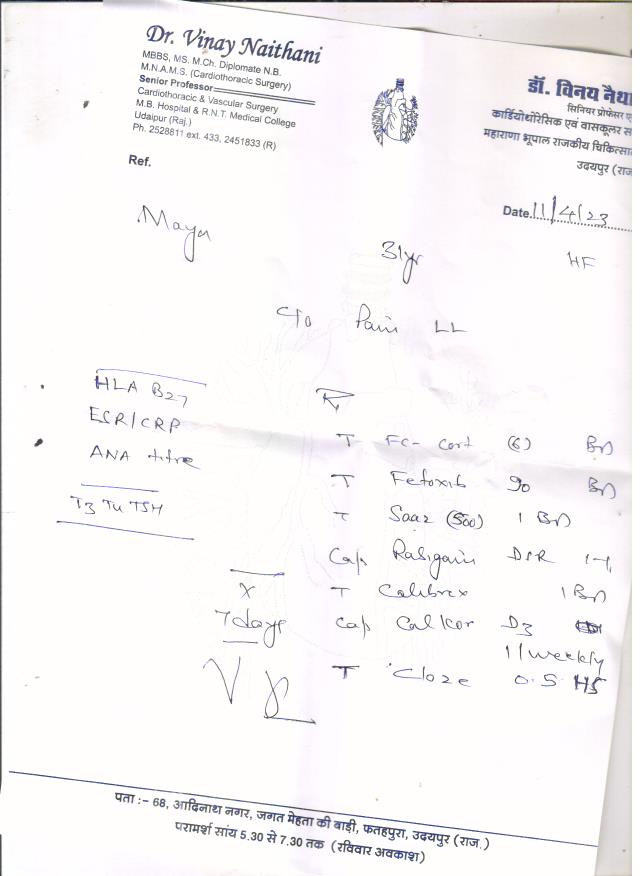 Dr. Vinay Naithani
MBBS, MS. M.Ch. Diplomate N.B.
M.N.A.M.S. (Cardiothoracic Surgery)
Senior Professor
Cardiothoracic & Vascular Surgery
M.B. Hospital & R.N.T. Medical College
Udaipur (Raj.)
Ph. 2528811 ext. 433, 2451833 (R)
Ref.
डॉ. विनय नैथा
सिनियर प्रोफेसर ए
कार्डियोथोरेसिक एवं वासकूलर स
महाराणा भूपाल राजकीय चिकित्सा
उदयपुर (राज
Date. 11/4/23
31yr
C/o Pain LL
HLA B27
ESR/CRP
ANA titre
T3 T4 TSH
Rx
T FC- Cort (6) BD
T Fetoxib 90 BD
T Saaz (500) 1 BD
Cap DSR
T 1 BD
Cap D3
1/weekly
T Cloze 0.5 HS
x
7 days
पता :- 68, आदिनाथ नगर, जगत मेहता की बाड़ी, फतहपुरा, उदयपुर (राज.)
परामर्श सांय 5.30 से 7.30 तक (रविवार अवकाश)